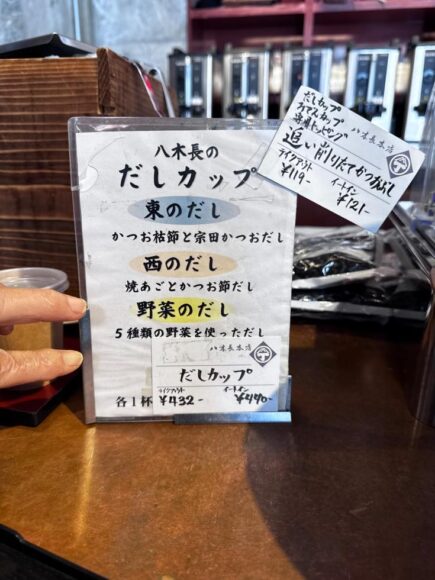 八木長の
だしカップ
東のだし
かつお枯節と宗田かつおだし
西のだし
焼あごとかつお節だし
野菜のだし
5種類の野菜を使っただし
八木長本店
だしカップ
テイクアウト イートイン
各1杯 ¥432- ¥440-
だしカップ
おでんカップ
専用トッピング
八木長本店
追い削りたてかつおぶし
テイクアウト イートイン
¥119- ¥121-